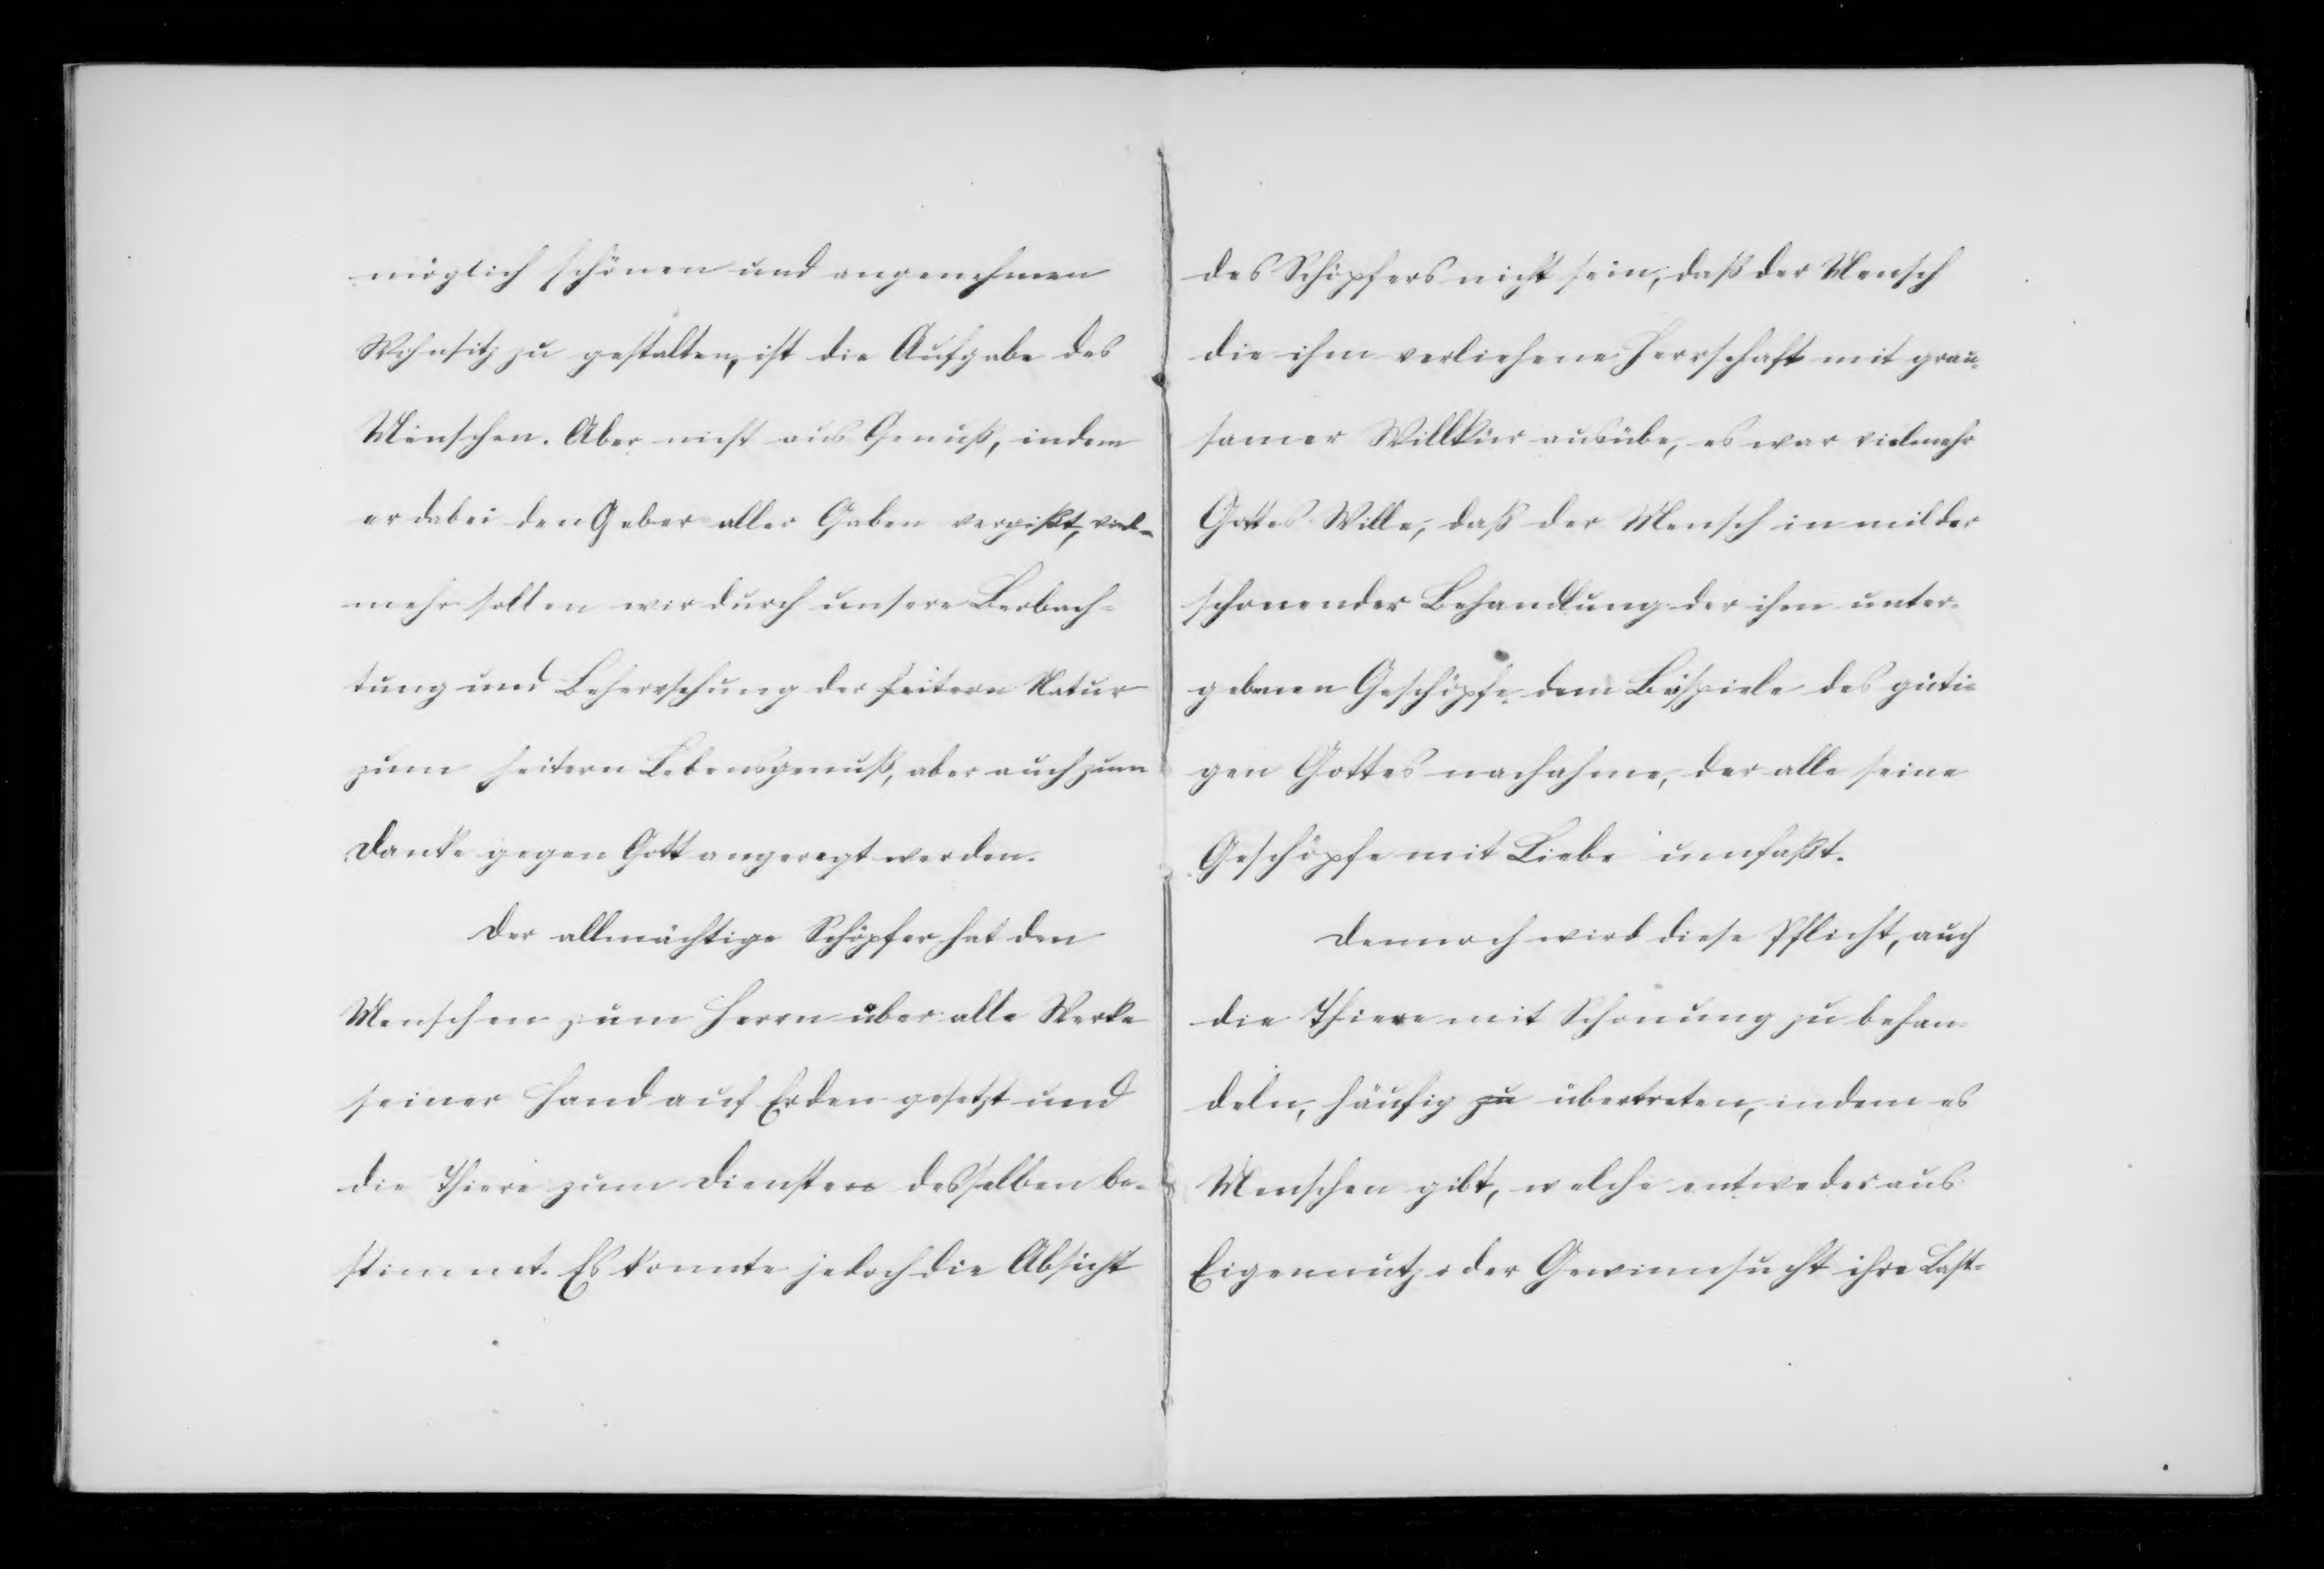 möglich schönen und angenehmen
Wohnsitz zu gestalten, ist die Aufgabe des
Menschen. Aber nicht aus Genuß, indem
er dabei den Geber aller Gaben vergißt, viel-
mehr sollen wir durch unsere Beobach-
tung und Beherrschung der heitern Natur
zum heitern Lebensgenuß, aber auch zum
Danke gegen Gott angeregt werden.
Der allmächtige Schöpfer hat den
Menschen zum Herrn über alle Werke
seiner Hand auf Erden gesetzt und
die Thiere zum Diensten desselben be-
stimmt. Es konnte jedoch die Absicht
des Schöpfers nicht sein, daß der Mensch
die ihm verliehene Herrschaft mit grau-
samer Willkür ausübe, es war vielmehr
Gottes Wille, daß der Mensch in milder
schonender Behandlung der ihm unter-
gebenen Geschöpfe dem Beispiele des güti-
gen Gottes nachahme, der alle seine
Geschöpfe mit Liebe umfaßt.
Dennoch wird diese Pflicht, auch
die Thiere mit Schonung zu behan-
deln, häufig zu übertreten, indem es
Menschen gibt, welche entweder aus
Eigennutz oder Gewinnsucht ihre Last-